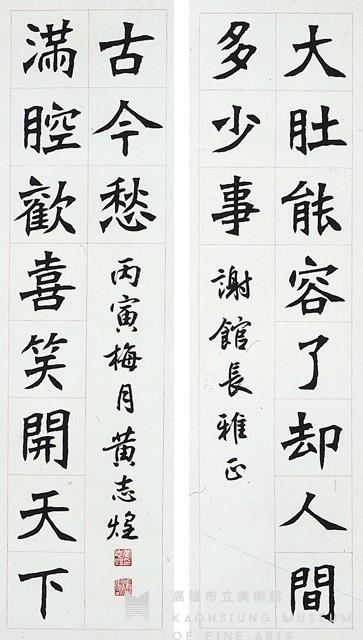 大肚能容了却人間
多少事
謝館長雅正
滿腔歡喜笑開天下
古今愁
丙寅梅月黄志煌
高雄市立美術館
KAOHSIUNG MUSEUM
OF FINE ARTS